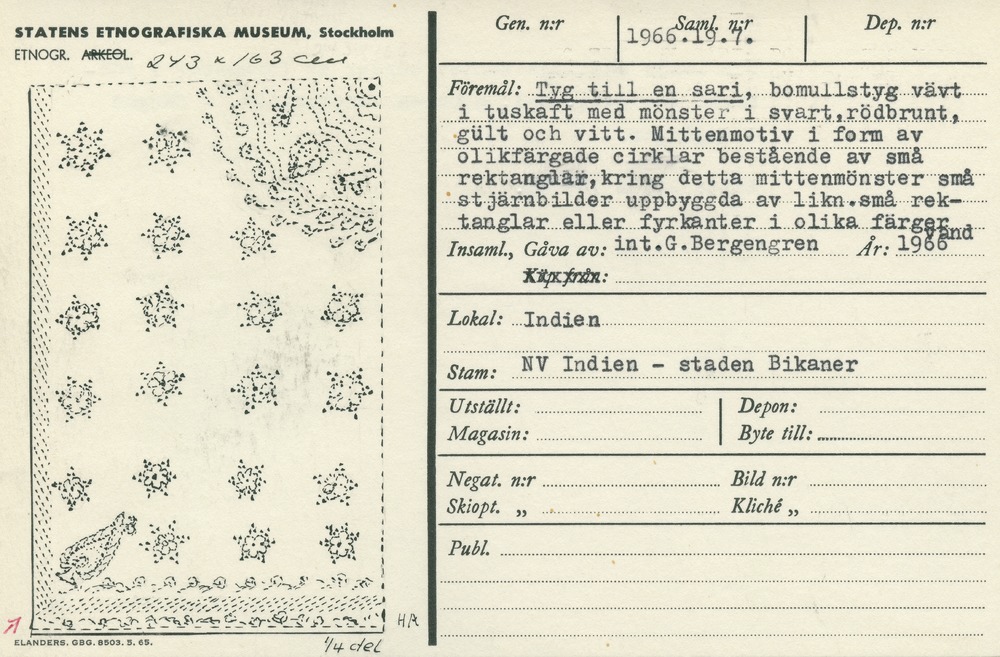 STATENS ETNOGRAFISKA MUSEUM, Stockholm
ETNOGR. ARKEOL. 243 x 163 cm
HA
1/4 del
ELANDERS. GBG. 8503. 5. 65.
Gen. n:r
Saml. n:r
1966.19.7.
Dep. n:r
Föremål: Tyg till en sari, bomullstyg vävt
i tuskaft med mönster i svart,rödbrunt,
gült och vitt. Mittenmotiv i form av
olikfärgade cirklar bestående av små
rektanglar,kring detta mittenmönster små
stjärnbilder uppbyggda av likn.små rek-
tanglar eller fyrkanter i olika färger
vänd
Insaml., Gåva av: int.G.Bergengren År: 1966
Köp från:
Lokal: Indien
Stam: NV Indien - staden Bikaner
Utställt: Depon:
Magasin: Byte till:
Negat. n:r Bild n:r
Skiopt. „ Kliché „
Publ.